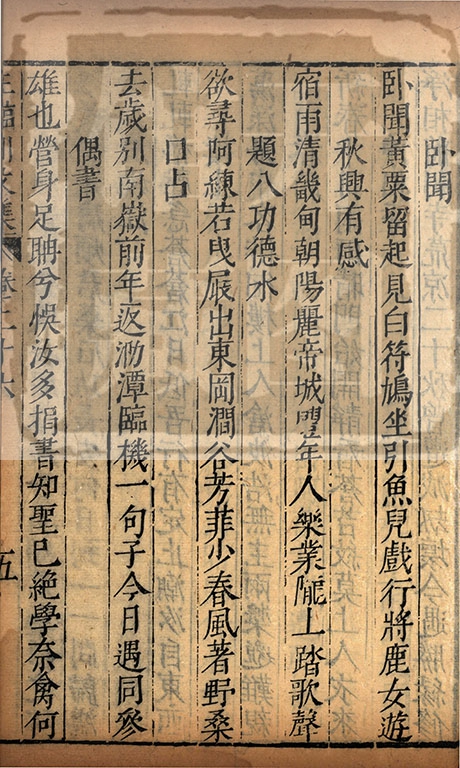 卧聞
卧聞黃粟留起見白符鳩坐引魚兒戲行將鹿女遊
秋興有感
宿雨清畿甸朝陽麗帝城豐年人樂業隴上踏歌聲
題八功德水
欲尋阿練若曳屐出東岡澗谷芳菲少春風著野桑
口占
去歲别南嶽前年返泐潭臨機一句子今日遇同參
偶書
雄也營身足聃兮悞汝多捐書知聖已絶學奈禽何
王臨川文集 卷二十六
五